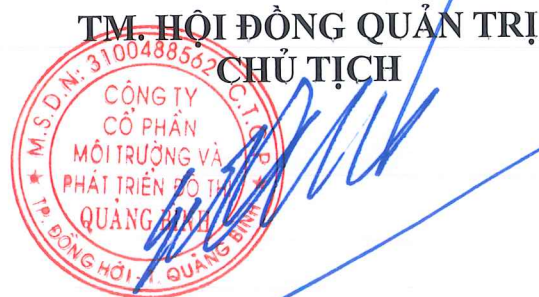 TM. HỘI ĐỒNG QUẢN TRỊ
CHỦ TỊCH
M.S.D.N: 3100488562-C.T.C.P
CÔNG TY
CỔ PHẦN
MÔI TRƯỜNG VÀ
PHÁT TRIỂN ĐÔ THỊ
QUẢNG BÌNH
TP. ĐỒNG HỚI - T. QUẢNG BÌNH